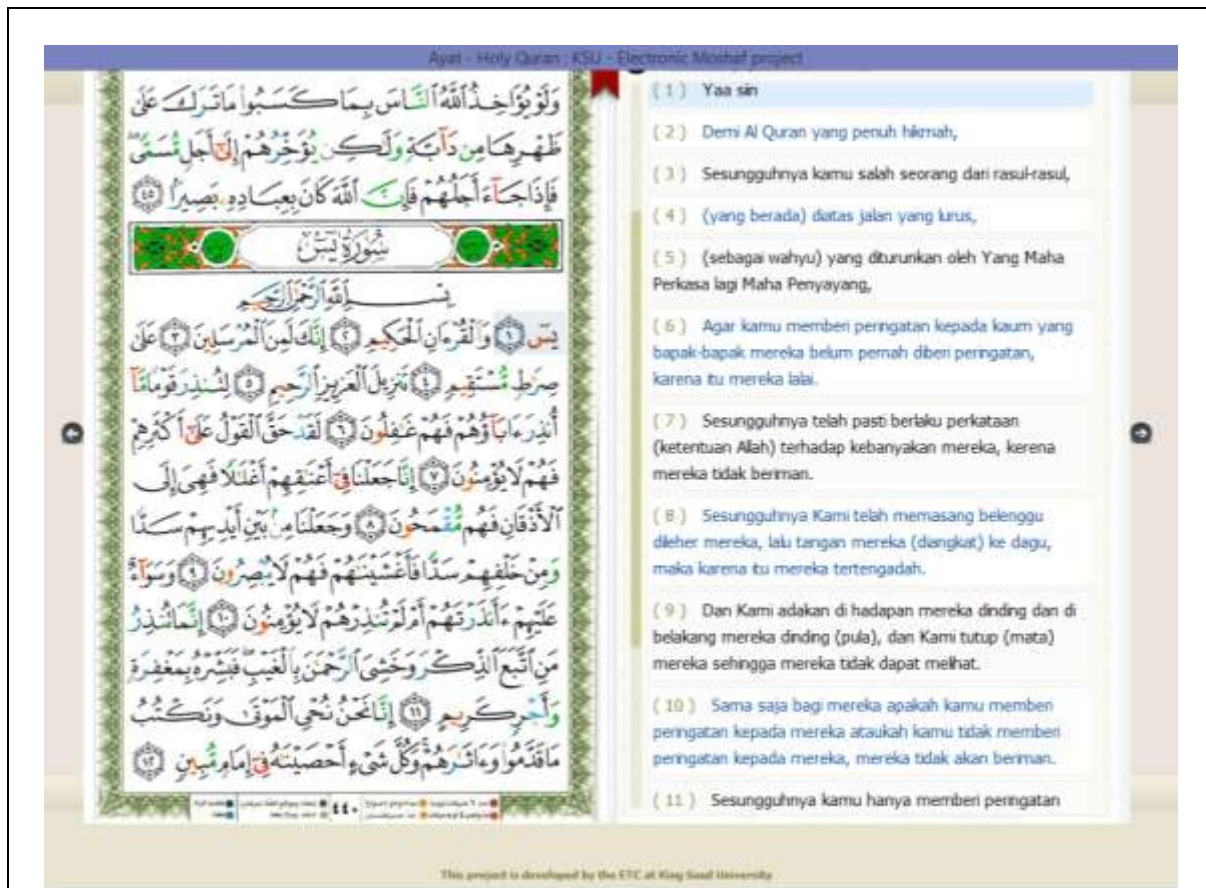 Ayat - Holy Quran : KSU - Electronic Moshaf project
وَلَوْ يُؤَاخِذُ ٱللَّهُ ٱلنَّاسَ بِمَا كَسَبُوا۟ مَا تَرَكَ عَلَىٰ
ظَهْرِهَا مِن دَآبَّةٍ وَلَٰكِن يُؤَخِّرُهُمْ إِلَىٰٓ أَجَلٍ مُّسَمًّى
فَإِذَا جَآءَ أَجَلُهُمْ فَإِنَّ ٱللَّهَ كَانَ بِعِبَادِهِۦ بَصِيرًۢا ٤٥
سُورَةُ يسٓ
بِسْمِ ٱللَّهِ ٱلرَّحْمَٰنِ ٱلرَّحِيمِ
يسٓ ١ وَٱلْقُرْءَانِ ٱلْحَكِيمِ ٢ إِنَّكَ لَمِنَ ٱلْمُرْسَلِينَ ٣ عَلَىٰ
صِرَٰطٍ مُّسْتَقِيمٍ ٤ تَنزِيلَ ٱلْعَزِيزِ ٱلرَّحِيمِ ٥ لِتُنذِرَ قَوْمًا مَّآ
أُنذِرَ ءَابَآؤُهُمْ فَهُمْ غَٰفِلُونَ ٦ لَقَدْ حَقَّ ٱلْقَوْلُ عَلَىٰٓ أَكْثَرِهِمْ
فَهُمْ لَا يُؤْمِنُونَ ٧ إِنَّا جَعَلْنَا فِىٓ أَعْنَٰقِهِمْ أَغْلَٰلًا فَهِىَ إِلَى
ٱلْأَذْقَانِ فَهُم مُّقْمَحُونَ ٨ وَجَعَلْنَا مِنۢ بَيْنِ أَيْدِيهِمْ سَدًّا
وَمِنْ خَلْفِهِمْ سَدًّا فَأَغْشَيْنَٰهُمْ فَهُمْ لَا يُبْصِرُونَ ٩ وَسَوَآءٌ
عَلَيْهِمْ ءَأَنذَرْتَهُمْ أَمْ لَمْ تُنذِرْهُمْ لَا يُؤْمِنُونَ ١٠ إِنَّمَا تُنذِرُ
مَنِ ٱتَّبَعَ ٱلذِّكْرَ وَخَشِىَ ٱلرَّحْمَٰنَ بِٱلْغَيْبِ فَبَشِّرْهُ بِمَغْفِرَةٍ
وَأَجْرٍ كَرِيمٍ ١١ إِنَّا نَحْنُ نُحْىِ ٱلْمَوْتَىٰ وَنَكْتُبُ
مَا قَدَّمُوا۟ وَءَاثَٰرَهُمْ وَكُلَّ شَىْءٍ أَحْصَيْنَٰهُ فِىٓ إِمَامٍ مُّبِينٍ ١٢
٤٤٠
( 1 ) Yaa sin
( 2 ) Demi Al Quran yang penuh hikmah,
( 3 ) Sesungguhnya kamu salah seorang dari rasul-rasul,
( 4 ) (yang berada) diatas jalan yang lurus,
( 5 ) (sebagai wahyu) yang diturunkan oleh Yang Maha
Perkasa lagi Maha Penyayang,
( 6 ) Agar kamu memberi peringatan kepada kaum yang
bapak-bapak mereka belum pernah diberi peringatan,
karena itu mereka lalai.
( 7 ) Sesungguhnya telah pasti berlaku perkataan
(ketentuan Allah) terhadap kebanyakan mereka, kerena
mereka tidak beriman.
( 8 ) Sesungguhnya Kami telah memasang belenggu
dileher mereka, lalu tangan mereka (diangkat) ke dagu,
maka karena itu mereka tertengadah.
( 9 ) Dan Kami adakan di hadapan mereka dinding dan di
belakang mereka dinding (pula), dan Kami tutup (mata)
mereka sehingga mereka tidak dapat melihat.
( 10 ) Sama saja bagi mereka apakah kamu memberi
peringatan kepada mereka ataukah kamu tidak memberi
peringatan kepada mereka, mereka tidak akan beriman.
( 11 ) Sesungguhnya kamu hanya memberi peringatan
This project is developed by the ETC at King Saud University